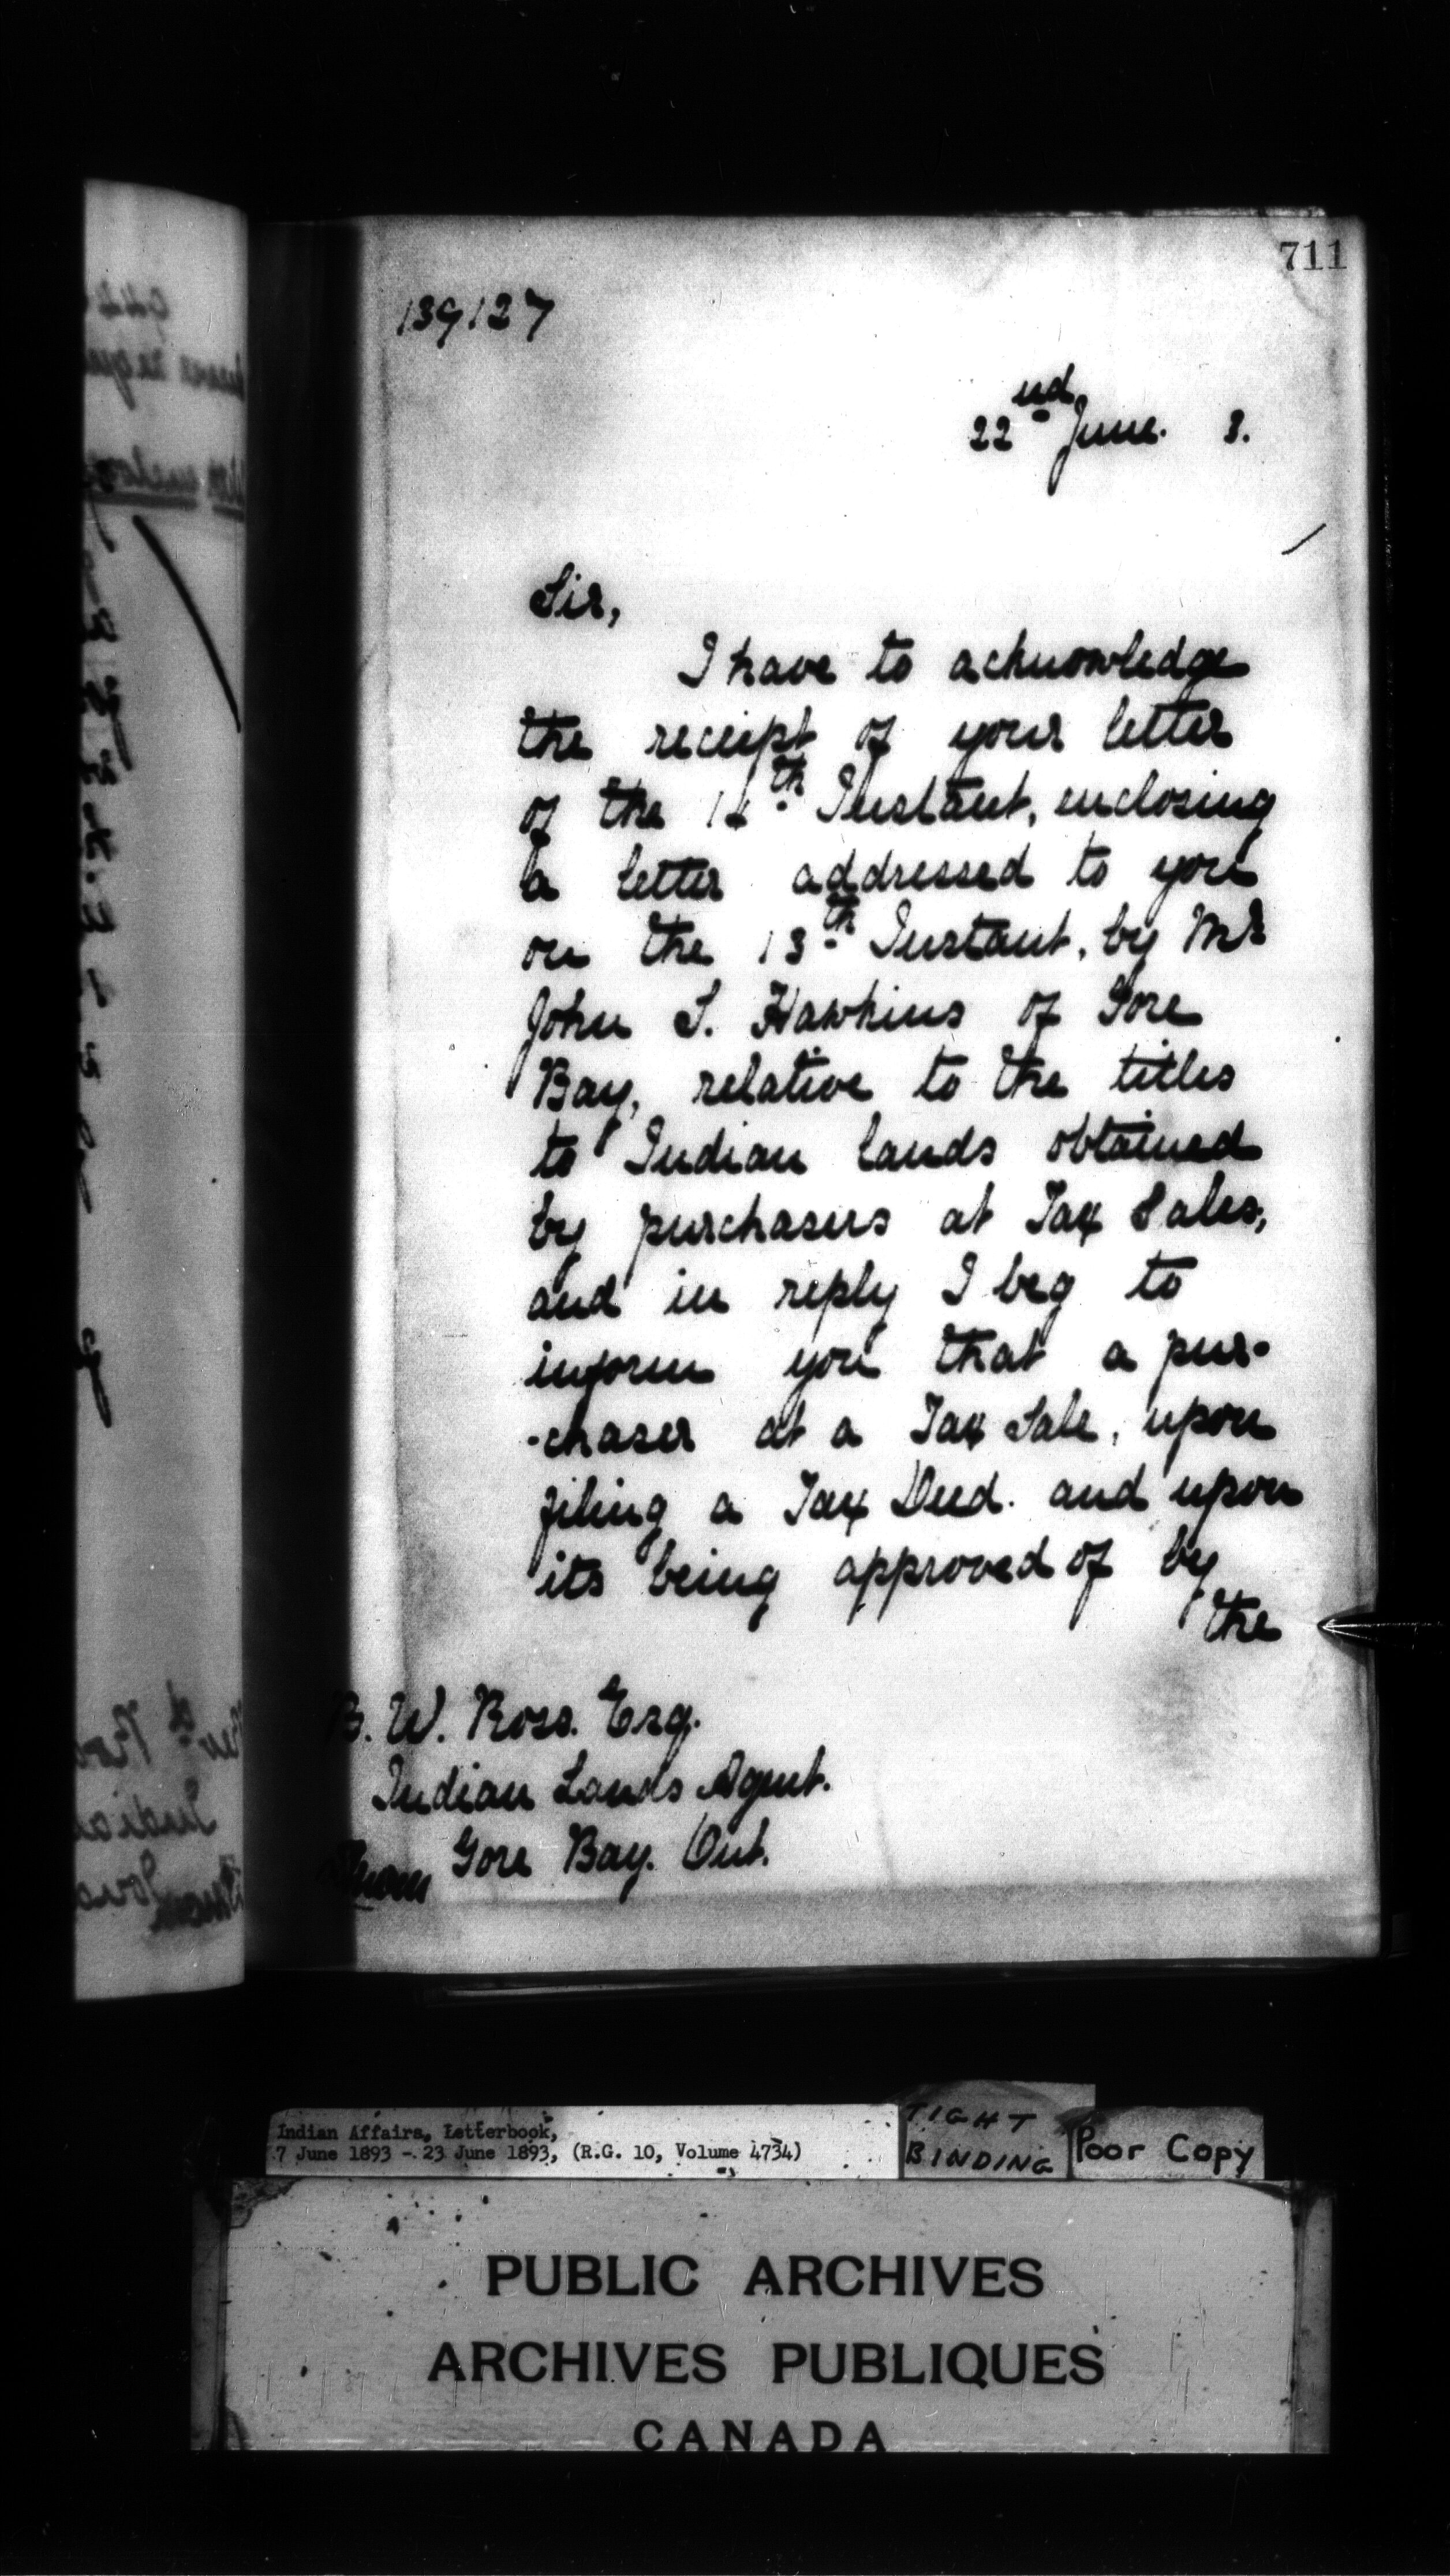 711
139127
22nd June. 3.
Sir,
I have to acknowledge
the receipt of your letter
of the 14th Instant, enclosing
a letter addressed to you
on the 13th Instant, by Mr
John S. Hawkins of Gore
Bay, relative to the titles
to Indian lands obtained
by purchasers at Tax Sales,
and in reply I beg to
inform you that a pur-
-chaser at a Tax Sale, upon
filing a Tax Deed. and upon
its being approved of by
the
B. W. Ross. Esq.
Indian Lands Agent.
Gore Bay. Ont.
Indian Affairs, Letterbook,
7 June 1893 - 23 June 1893, (R.G. 10, Volume 4734)
TIGHT
BINDING
Poor Copy
PUBLIC ARCHIVES
ARCHIVES PUBLIQUES
CANADA